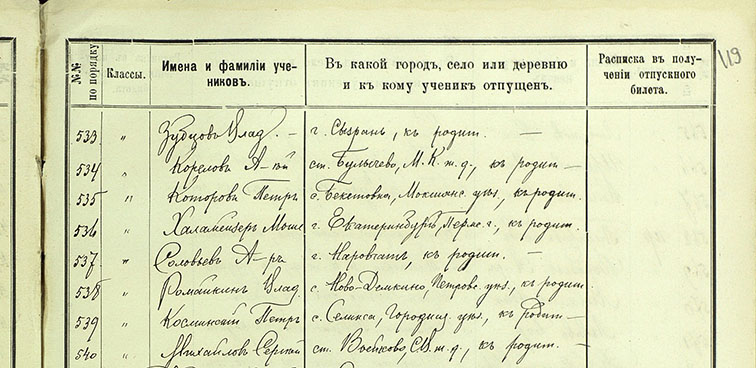 119
№№ по порядку
Классы.
Имена и фамиліи уче-
никовъ.
Въ какой городъ, село или деревню
и къ кому ученикъ отпущенъ.
Расписка въ полу-
ченіи отпускного
билета.
533 " Зубцовъ Влад. — г. Сызрань, къ родит. —
534 " Корелов А-ѣй ст. Булычево, М. К. ж. д., къ родит —
535 " Которовъ Петръ с. Бекетовка, Мокшанс. уѣз., къ родит.
536 " Халамейзеръ г. Екатеринбургъ, Пермс. г., къ родит.
537 " Соловьевъ А-ръ г. Наровчатъ, къ родит. —
538 " Ромайкинъ Влад. с. Ново-Демкино, Петровс. уѣз., къ родит
539 " Косминскій Петръ с. Селикса, Городищ. уѣз., къ родит —
540 " Михайловъ Сергѣй ст. Воейково, ж. д., къ родит. —